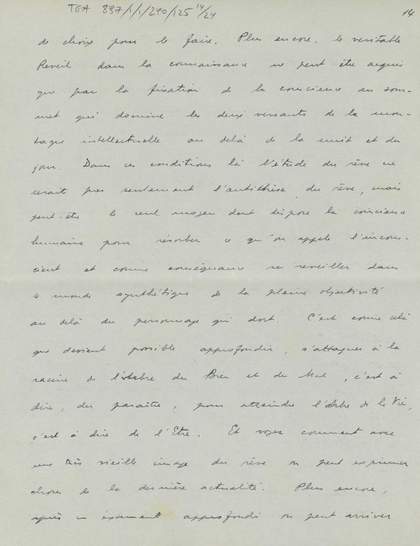 TGA 887/1/1/290/125 14/24
14
de choix pour le faire. Plus encore, le véritable
Réveil dans la connaissance ne peut être acquis
que par la fixation de la conscience au som-
met qui domine les deux versants de la mon-
tagne intellectuelle au delà de la nuit et du
jour. Dans ces conditions là l'étude du rêve ne
serait pas seulement l'antithèse du rêve, mais
peut-être le seul moyen dont dispose la conscience
humaine pour résorber ce qu'on appelle l'incons-
cient et comme conséquence se réveiller dans
le monde synthétique de la pleine objectivité
au delà du personnage qui dort. C'est comme cela
que devient possible approfondir, s'attaquer à la
racine de l'Arbre du Bien et du Mal, c'est à
dire, du paraître, pour atteindre l'Arbre de la Vie,
c'est à dire de l'Etre. Et voyez comment avec
une très vieille image du rêve on peut exprimer
choses de la dernière actualité. Plus encore,
après un examen approfondi on peut arriver